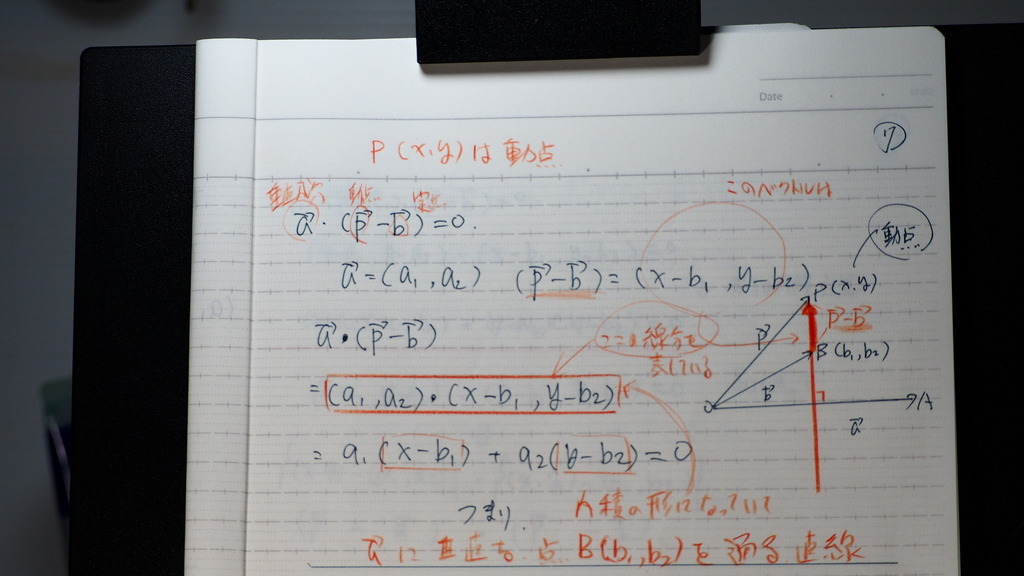 Date
⑦
P(x,y)は動点
動点 定点
このベクトルは
a⃗・(p⃗-b⃗)=0.
動点
a⃗=(a₁,a₂) (p⃗-b⃗)=(x-b₁,y-b₂)
P(x,y)
a⃗・(p⃗-b⃗)
ここの線分を
表している
p⃗
p⃗-b⃗
B(b₁,b₂)
=(a₁,a₂)・(x-b₁,y-b₂)
O
b⃗
A
a⃗
=a₁(x-b₁)+a₂(y-b₂)=0
つまり.
内積の形になっていて
a⃗に垂直な点B(b₁,b₂)を通る直線